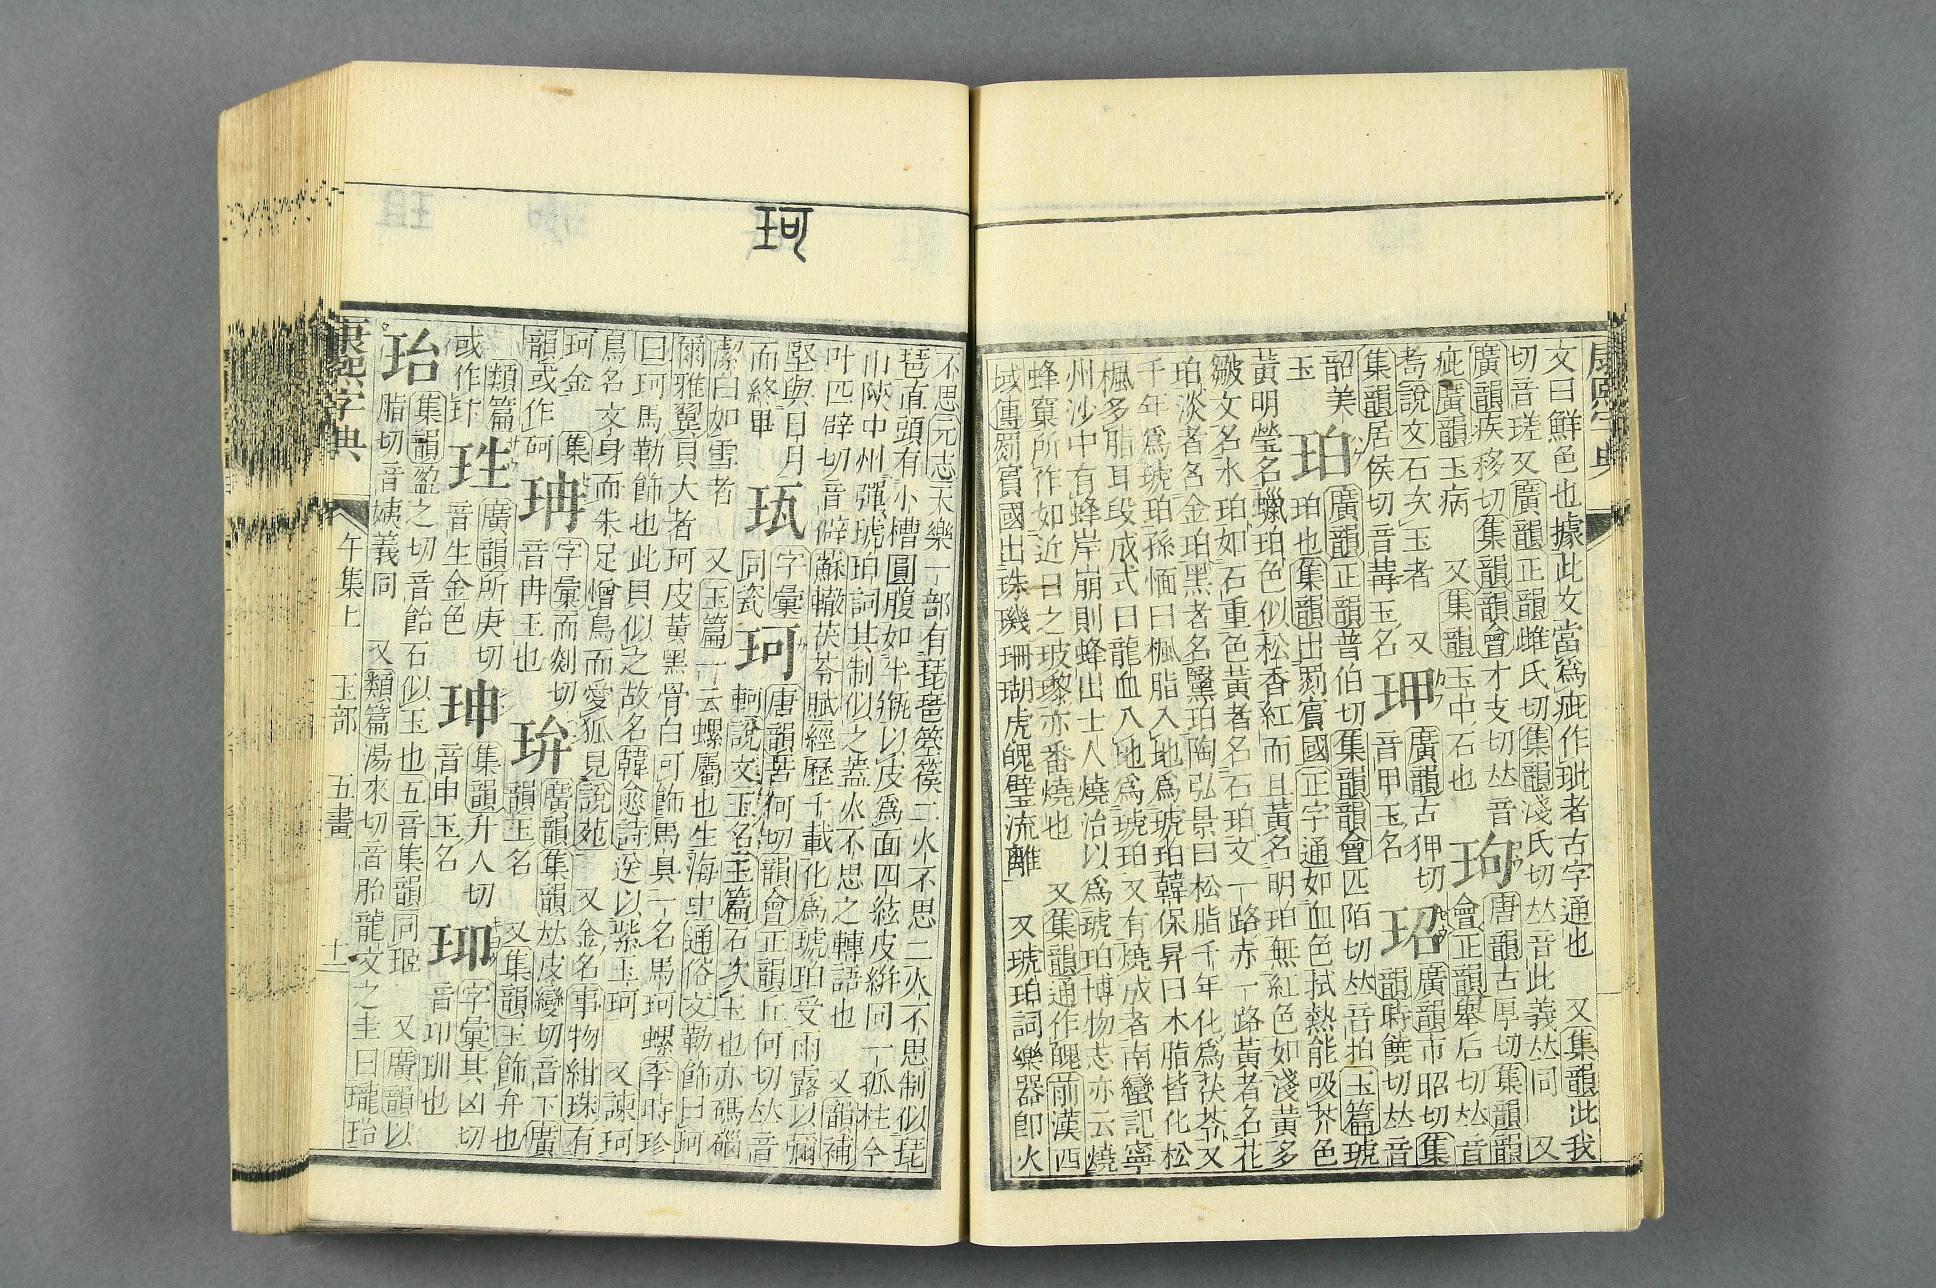 康熙字典
文曰鮮色也據此文當爲疵作玼者古字通也 又集韻此我
切音瑳又廣韻正韻雌氏切集韻淺氏切𠀤音此義𠀤同 又
廣韻疾移切集韻韻會才支切𠀤音
疵廣韻玉病 又集韻玉中石也
玽
唐韻古厚切集韻韻
會正韻舉后切𠀤音
耇說文石次玉者 又
集韻居侯切音冓玉名
玾
廣韻古狎切
音甲玉名
玿
廣韻市昭切集
韻時饒切𠀤音
韶美
玉
珀
廣韻正韻普伯切集韻韻會匹陌切𠀤音拍玉篇琥
珀也集韻出罽賓國正字通如血色拭熱能吸芥色
黃明瑩名蠟珀色似松香紅而且黃名明珀無紅色如淺黃多
皺文名水珀如石重色黃者名石珀文一路赤一路黃者名花
珀淡者名金珀黑者名黳珀陶弘景曰松脂千年化爲茯苓又
千年爲琥珀孫愐曰楓脂入地爲琥珀韓保昇曰木脂皆化松
楓多脂耳段成式曰龍血入地爲琥珀又有燒成者南蠻記寧
州沙中有蜂岸崩則蜂出土人燒治以爲琥珀博物志亦云燒
蜂窠所作如近日之玻瓈亦番燒也 又集韻通作魄前漢西
域傳罽賓國出珠璣珊瑚虎魄璧流離 又琥珀詞樂器卽火
珂
不思元志天樂一部有琵琶箜篌二火不思二火不思制似琵
琶直頭有小槽圓腹如半甁以皮爲面四絃皮絣同一孤柱今
山陝中州彈琥珀詞其制似之蓋火不思之轉語也 又韻補
叶匹辟切音僻蘇轍茯苓賦經歷千載化爲琥珀受雨露以彌
堅與日月
而終畢
字彙
同瓷
珂
唐韻苦何切韻會正韻丘何切𠀤音
軻說文玉名玉篇石次玉也亦碼碯
潔白如雪者 又玉篇一云螺屬也生海中通俗文勒飾曰珂
爾雅翼貝大者珂皮黃黑骨白可飾馬具一名馬珂螺李時珍
曰珂馬勒飾也此貝似之故名韓愈詩送以紫玉珂 又諫珂
鳥名文身而朱足憎鳥而愛狐見說苑 又金名事物紺珠有
珂金 集
韻或作砢
珃
字彙而剡切
音冉玉也
玣
廣韻集韻𠀤皮變切音卞廣
韻玉名 又集韻玉飾弁也
類篇
或作
珄
廣韻所庚切
音生金色
珅
集韻升人切
音申玉名
字彙其凶切
音卭玔也
珆
集韻盈之切音飴石似玉也五音集韻同 又廣韻以
脂切音姨義同 又類篇湯來切音胎龍文之圭曰瓏珆
康熙字典 午集上 玉部 五畫 十一